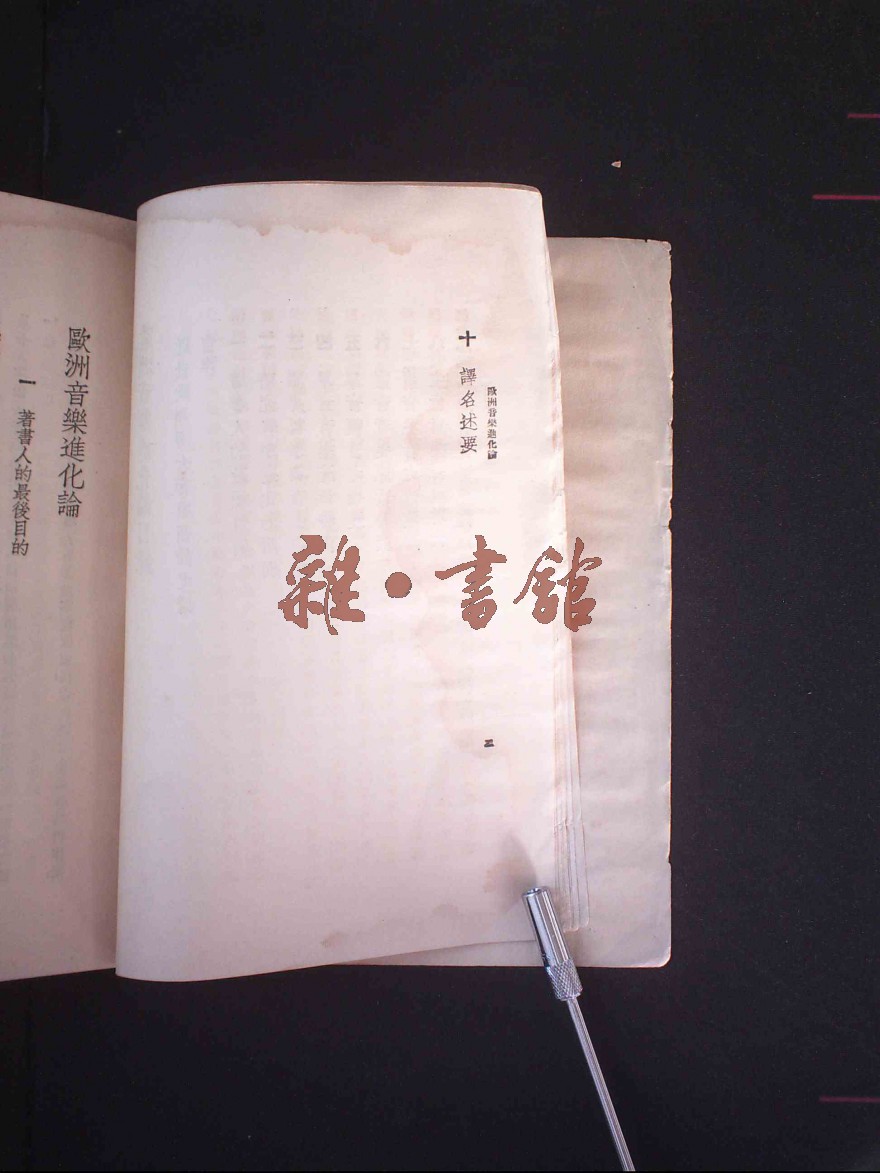 歐洲音樂進化論
十 譯名述要
二
歐洲音樂進化論
一 著書人的最後目的
雜·書館